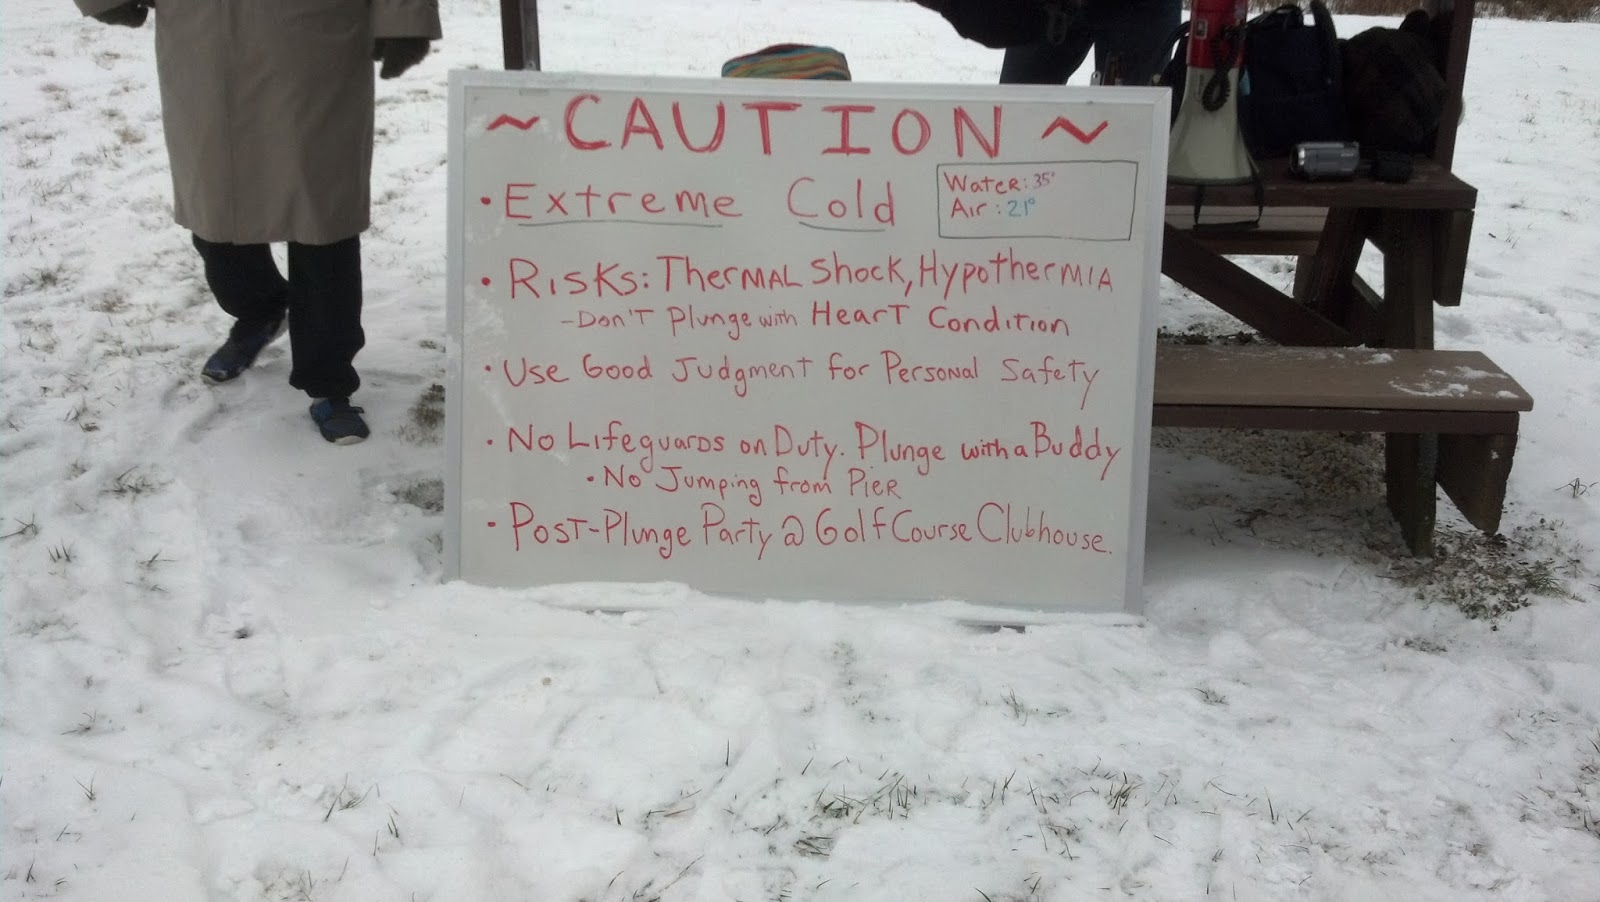 ~ CAUTION ~
• Extreme Cold
Water: 35°
Air: 21°
• Risks: Thermal Shock, Hypothermia
- Don't Plunge with Heart Condition
• Use Good Judgment for Personal Safety
• No Lifeguards on Duty. Plunge with a Buddy
• No Jumping from Pier
• Post-Plunge Party @ Golf Course Clubhouse.